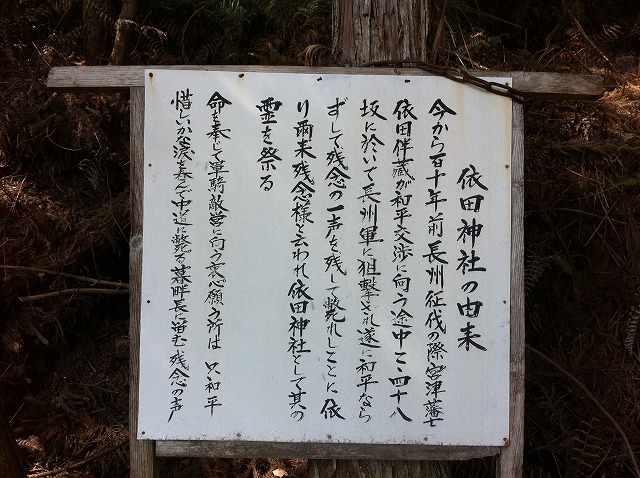 依田神社の由来
今から百十年前長州征伐の際宮津藩士
依田伴蔵が和平交渉に向う途中こゝ四十八
坂に於いて長州軍に狙撃され遂に和平なら
ずして残念の一声を残して斃れしことに依
り雨来残念様と云われ依田神社として其の
霊を祭る
命を奉じて単騎敵営に向う衷心願う所は只和平
惜しいかな涙を呑んで中道に斃る墓畔長に留む残念の声